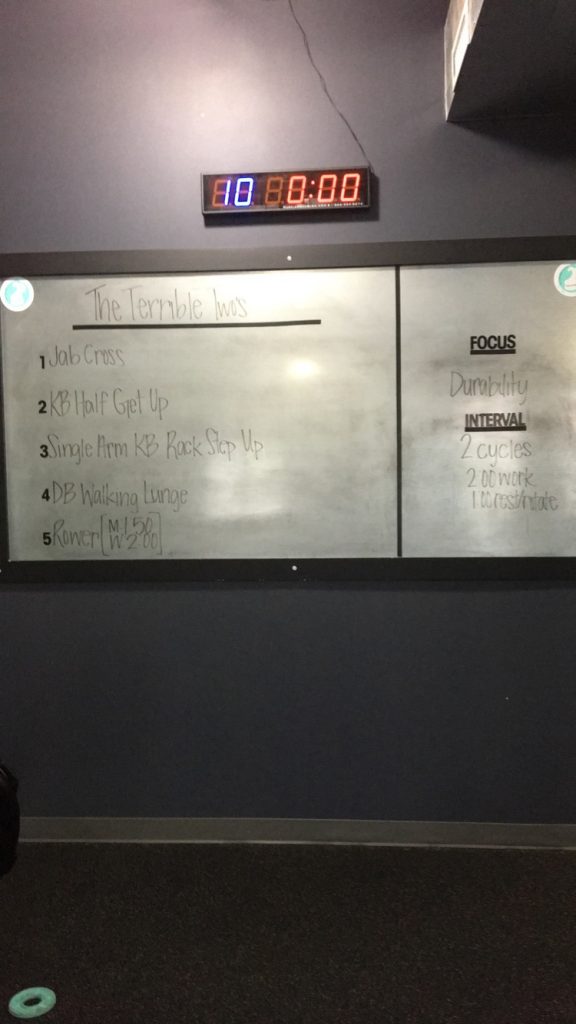 10 0:00
The Terrible Two's
1 Jab Cross
2 KB Half Get Up
3 Single Arm KB Rack Step Up
4 DB Walking Lunge
5 Rower [M 1:50
W 2:00]
FOCUS
Durability
INTERVAL
2 cycles
2:00 work
1:00 rest/rotate